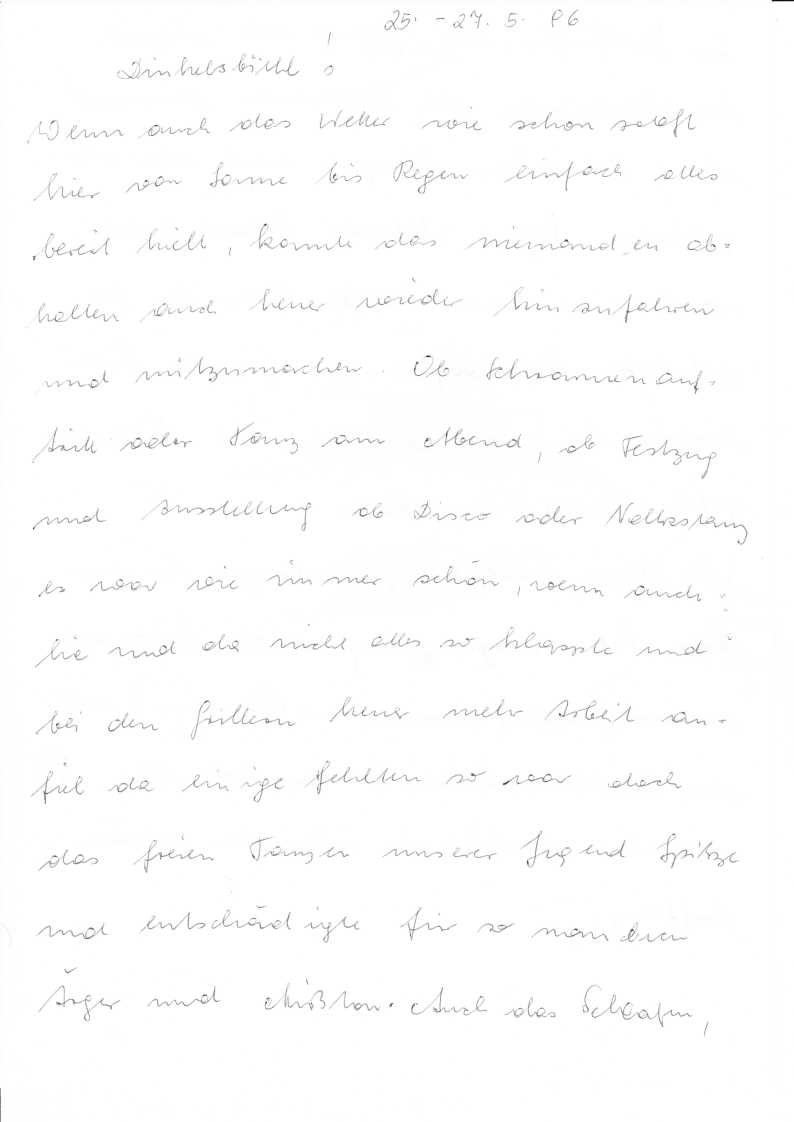 25. - 27. 5. 96
Dinkelsbühl !
Wenn auch das Wetter wie schon so oft
hier von Sonne bis Regen einfach alles
bereit hielt, konnte das niemanden ab=
halten auch heuer wieder hinzufahren
und mitzumachen. Ob Schrannenauf-
tritt oder Tanz am Abend, ob Festzug
und Ausstellung ob Disco oder Volkstanz
es war wie immer schön, wenn auch
hie und da nicht alles so klappte und
bei den Grillern heuer mehr Arbeit an-
fiel da einige fehlten so war doch
das freien Tanzen unserer Jugend Spitze
und entschädigte für so manchen
Ärger und Mißton. Auch das Schlafen,